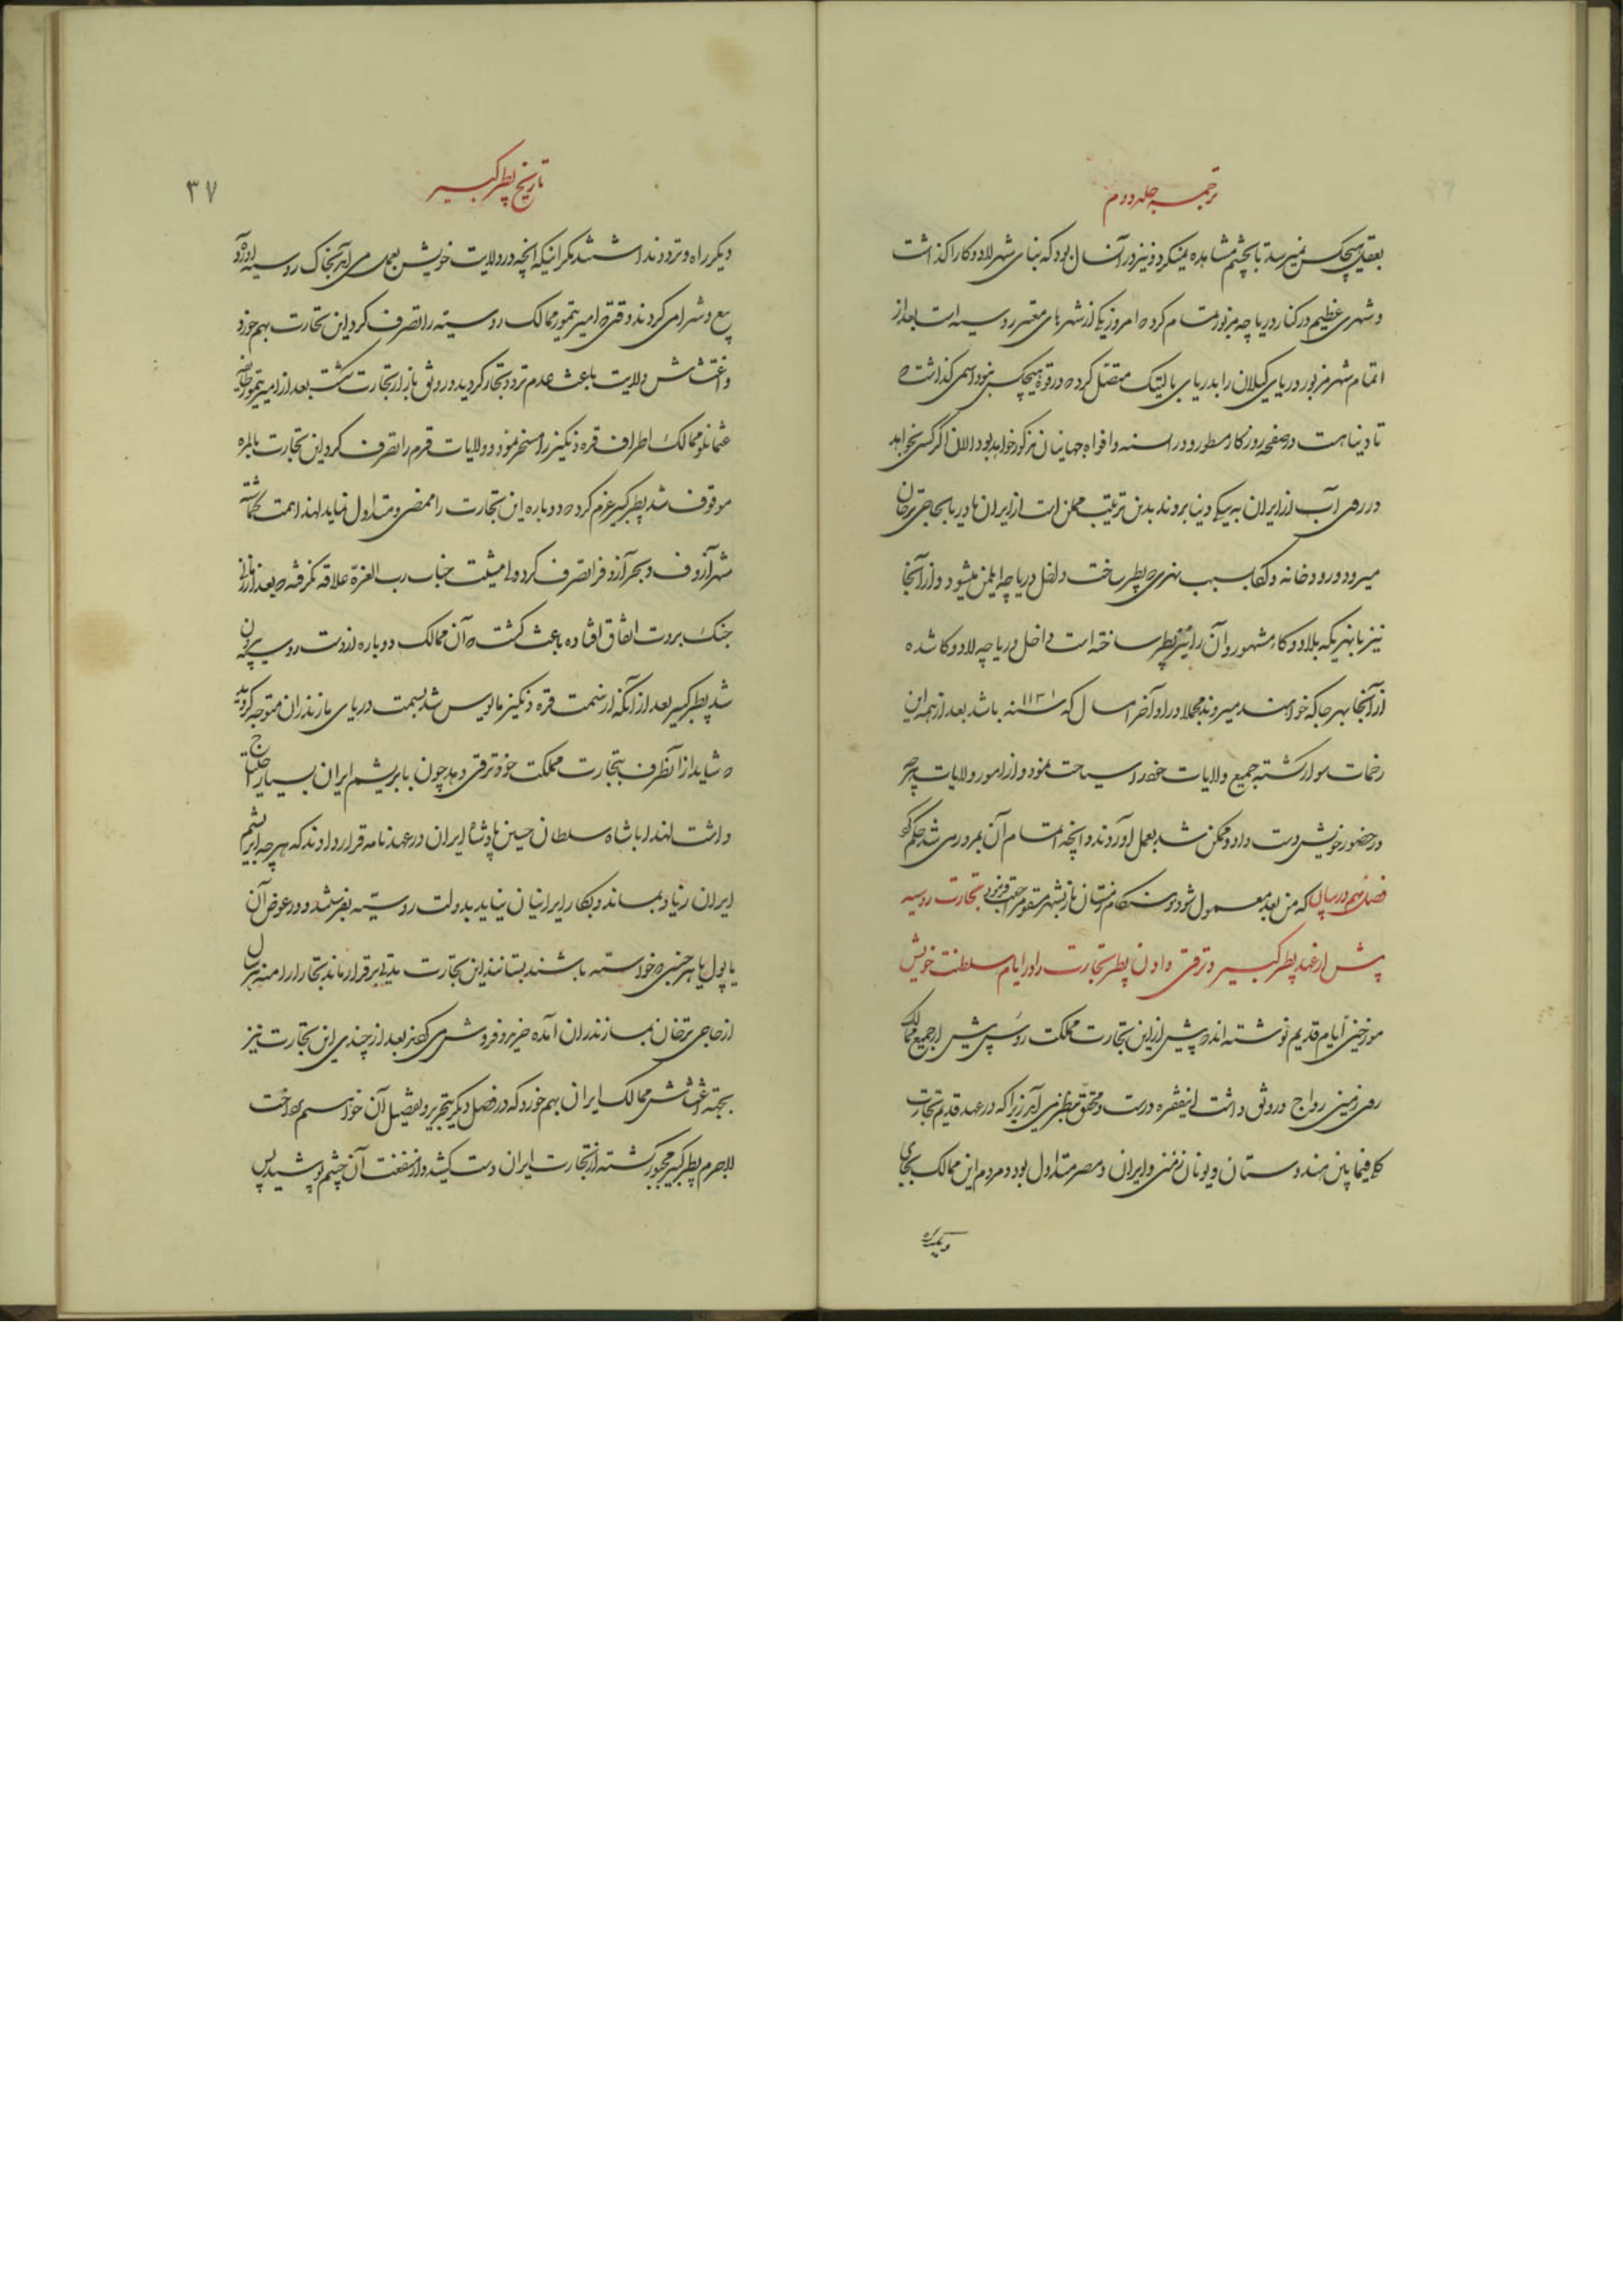 ترجمه جلد دوم
بعقل هیچکس نمیرسد تا بچشم مشاهده نمیکرد و نیز در آنسال بود که بنای شهر لادوکا را گذاشت
و شهری عظیم در کنار دریاچه مزبور تمام کرده امروز یکی از شهرهای معتبر روسیه است بعد از
اتمام شهر مزبور دریای گیلان را بدریای بالتیک متصل کرده در قوه هیچکس نبود اسمی گذاشت که
تا دنیا هست در صفحه روزگار مسطور و در السنه و افواه جهانیان مذکور خواهد بود الان اگر کسی بخواهد
در روی آب از ایران به ینگی دنیا بروند بدین ترتیب ممکن است از ایران تا دریا بحاجی ترخان
میرود و رودخانه ولکا بسبب نهری که پطر ساخت داخل دریاچه ایلمن میشود و از آنجا
نیز با نهریکه بلادوکا مشهور و آن را نیز پطر ساخته است داخل دریاچه لادوکا شده
از آنجا بهر جا که خواهند میروند مجملا در اواخر امسال که سنه ۱۱۳۱ باشد بعد از همه این
زحمات سوار گشته جمیع ولایات خود را سیاحت نمود و از امور ولایات هر چه
در حضور خویش دست داد و ممکن شد بعمل آوردند و آنچه اتمام آن بمرور می شد حکم کرد
که من بعد معمول شود و هنگام زمستان باز بشهر مسقو مراجعت فرمود فصل نهم در بیان تجارت روسیه
پیش از عهد پطر کبیر و ترقی دادن پطر تجارت را در ایام سلطنت خویش
مورخین ایام قدیم نوشته اند که پیش از این تجارت مملکت روس پیش از جمیع ممالک
روی زمین رواج و رونق داشت اینفقره درست و محقق بنظر می آید زیرا که در عهد قدیم تجارت
کلا فیما بین هندوستان و یونان زمین و ایران و مصر متداول بود و مردم این ممالک بجای
دیگر راه
تاریخ پطر کبیر
۳۷
دیگر راه و تردد نداشتند مگر اینکه آنچه در ولایت خویش بعمل می آید بخاک روسیه آورده
بیع و شرا می کردند وقتی که امیر تیمور ممالک روسیه را تصرف کرد این تجارت بهم خورد
و اغتشاش ولایت باعث عدم تردد تجار گردید و رونق بازار تجارت شکست بعد از امیر تیمور
عثمانلو ممالک اطراف قره دنگیز را مسخر نمود و ولایات قرم را تصرف کرد این تجارت بالمره
موقوف شد پطر کبیر عزم کرد که دوباره این تجارت را ممضی و متداول نماید لهذا همت گماشته
شهر آزوف و بحر آزوف را تصرف کرد و مشیت جناب رب العزة علاقه نگرفته که بعد از آنی
جنک پروت اتفاق افتاده باعث گشت که آن ممالک دوباره از دست روسیه بیرون
شد پطر کبیر بعد از آنکه از سمت قره دنگیز مایوس شد بسمت دریای مازندران متوجه گردید
که شاید از آنطرف بتجارت مملکت خود ترقی دهد چون بابریشم ایران بسیار احتیاج
داشت لهذا با شاه سلطان حسین پادشاه ایران در عهدنامه قرار دادند که هر چه ابریشم
ایران زیاد بماند و بکار ایرانیان نیاید بدولت روسیه بفرستند و در عوض آن
یا پول یا هر جنسی که خواسته باشند بستانند این تجارت مدتی برقرار ماند تجار ارامنه هر سال
از حاجی ترخان بمازندران آمده خرید و فروش می کردند بعد از چندی این تجارت نیز
بجهة اغتشاش ممالک ایران بهم خورد که در فصل دیگر بتحریر و تفصیل آن خواهیم پرداخت
لاجرم پطر کبیر مجبور گشته از تجارت ایران دست کشید و از منفعت آن چشم پوشید پس